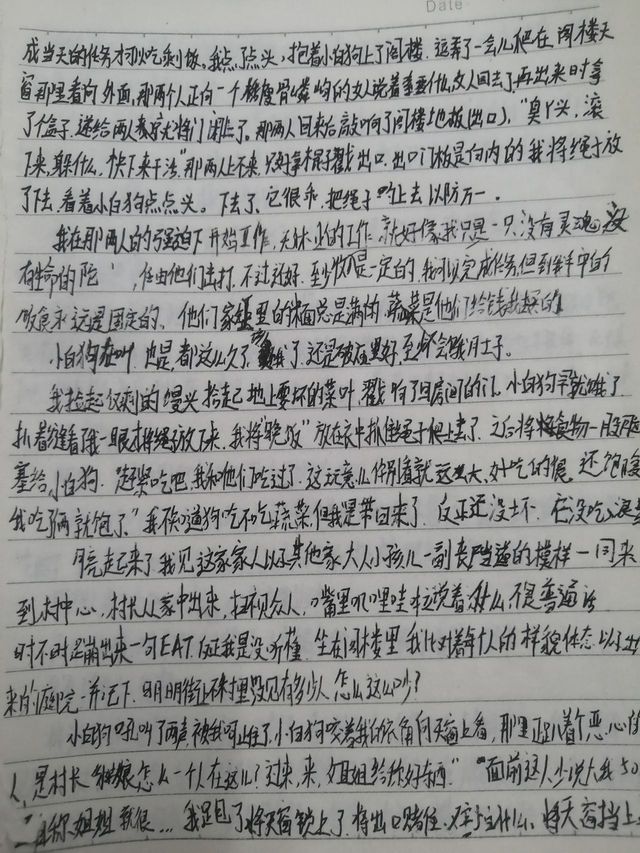 Date
成当天的任务才可以吃剩饭。我点了点头,抱着小白狗上了阁楼。逗弄了一会儿爬在阁楼天
窗那里看向外面,那两个人正向一个瘦骨嶙峋的女人说着重要什么,女人回去了再出来时拿
了个盒子,递给两人教完将门闭上了。那两人回来后敲响了阁楼地板(出口),“臭丫头,滚
下来,躲什么,快下来干活”那两上不来,只好拿棍子戳出口,出口门板是向内的我将绳子放
了下去,看着小白狗点点头。下去了,它很乖,把绳子 上去以防万一。
我在那两人的强迫下开始工作,无休止的工作,就好像我只是一只没有灵魂没
有生命的陀 ,任由他们击打,不过还好,至少 是一定的,我可以完成任务,但到手中的
饭食永远是固定的。他们家里白米面总是满的,蔬菜是他们给钱我买的
小白狗在叫,也是,都这么久了, 饿了,还是放在里好至少不会饿肚子。
我捡起仅剩的馒头拾起地上要坏的菜叶,戳响了回房间的门,小白狗 就
扒着缝看了我一眼才将绳子放下来,我将“晚饭”放在衣中抓住绳子爬上去了,之后将食物一股脑
塞给小白狗,“赶紧吃吧,我和他们吃过了,这玩意儿你别看就这么大,好吃的很,还饱腹
我吃了俩就饱了。”我不知道狗吃不吃蔬菜,但我是带回来了,反正还没坏,
月亮起来了我见这家家人以及其他家大人小孩儿一副丧尸当道的模样一同来
到村中心,村长从家中出来,扫视众人,嘴里叽里哇啦说着什么,不是普通话
时不时蹦出来一句EAT,反正我是没听懂,坐在阁楼里我比对着每个人的样貌体态以及出
来的庭院一并记下,明明街上村里没见有多少人,怎么这么
小白狗吼叫了两声被我呵止了,小白狗咬着我的衣角向天窗上看,那里正趴着个恶心的
人,是村长“ 娘怎么一个人在这儿?过来,来,姐姐给你好东西”“面前这人少说大我50
自称姐姐 很... 我 了将天窗锁上了,将出口堵住, 什么,将天窗挡上